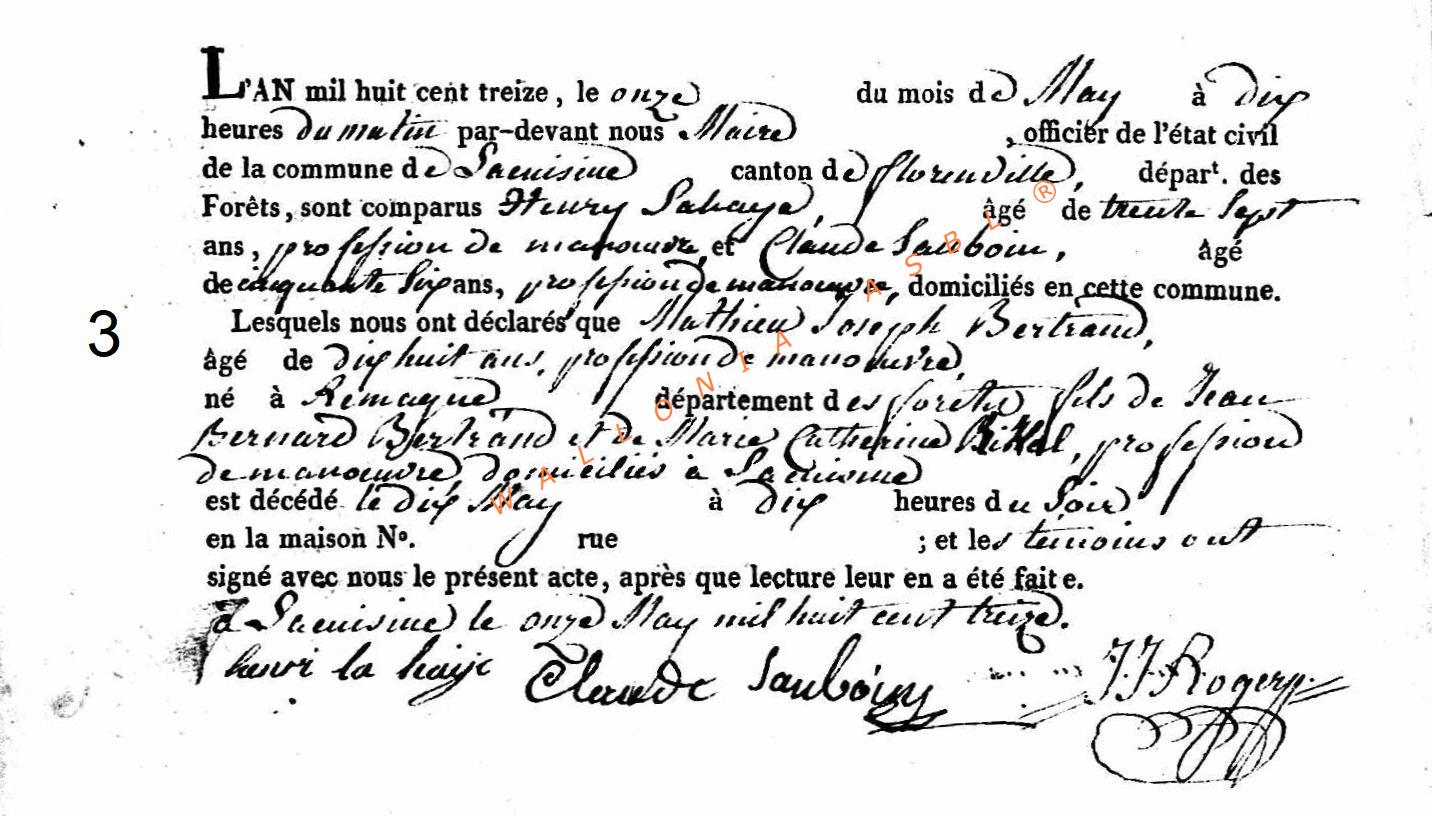 L'AN mil huit cent treize, le onze du mois de May à dix
heures du matin par-devant nous Maire , officier de l'état civil
de la commune de Lacuisine canton de florenville, départ. des
Forêts, sont comparus Henry Lahaye, âgé de trente Sept
ans, profession de manouvre, et Claude Sauboin, âgé
de cinquante Six ans, profession de manouvre, domiciliés en cette commune.
3
Lesquels nous ont déclarés que Mathieu Joseph Bertrand,
âgé de dix huit ans, profession de manouvre,
né à Remagne département des forêts fils de Jean
Bernard Bertrand et de Marie Catherine , profession
de manoeuvre, domiciliés à Lacuisine
est décédé le dix May à dix heures du Soir
en la maison No. rue ; et les témoins ont
signé avec nous le présent acte, après que lecture leur en a été faite.
à Lacuisine le onze May mil huit cent treize.
henri la haije Claude Sauboin J J Rogery
WALLONIA ASBL ®